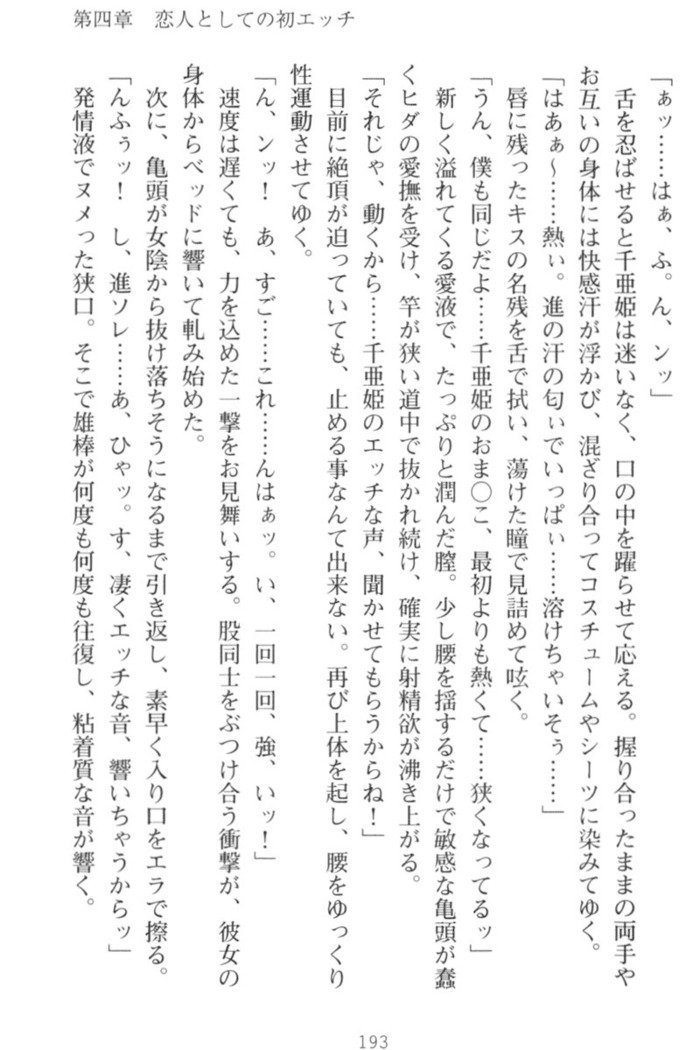 第四章　恋人としての初エッチ
「ぁッ……はぁ、ふ。ん、ンッ」
舌を忍ばせると千亜姫は迷いなく、口の中を躍らせて応える。握り合ったままの両手や
お互いの身体には快感汗が浮かび、混ざり合ってコスチュームやシーツに染みてゆく。
「はあぁ～……熱ぃ。進の汗の匂ぃでいっぱぃ……溶けちゃいそぅ……」
唇に残ったキスの名残を舌で拭い、蕩けた瞳で見詰めて呟く。
「うん、僕も同じだよ……千亜姫のおま〇こ、最初よりも熱くて……狭くなってるッ」
新しく溢れてくる愛液で、たっぷりと潤んだ膣。少し腰を揺するだけで敏感な亀頭が蠢
くヒダの愛撫を受け、竿が狭い道中で抜かれ続け、確実に射精欲が沸き上がる。
「それじゃ、動くから……千亜姫のエッチな声、聞かせてもらうからね！」
目前に絶頂が迫っていても、止める事なんて出来ない。再び上体を起し、腰をゆっくり
性運動させてゆく。
「ん、ンッ！　あ、すご……これ……んはぁッ。い、一回一回、強、いッ！」
速度は遅くても、力を込めた一撃をお見舞いする。股同士をぶつけ合う衝撃が、彼女の
身体からベッドに響いて軋み始めた。
次に、亀頭が女陰から抜け落ちそうになるまで引き返し、素早く入り口をエラで擦る。
「んふぅッ！　し、進ソレ……あ、ひゃッ。す、凄くエッチな音、響いちゃうからッ」
発情液でヌメった狭口。そこで雄棒が何度も何度も往復し、粘着質な音が響く。
193